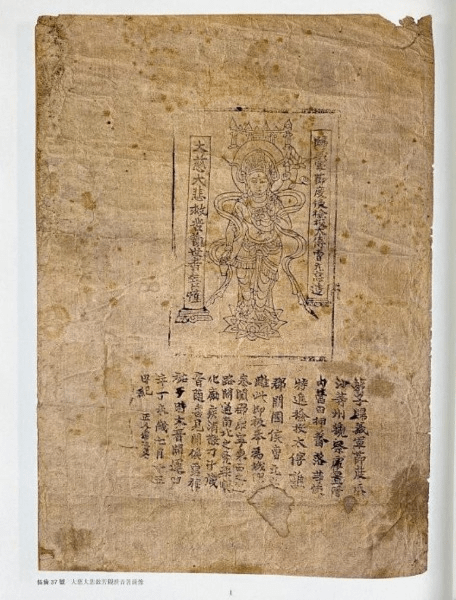 歸義軍節度使檢校太傅曹元忠造
大慈大悲救苦觀世音菩薩
弟子歸義軍節度瓜
沙等州觀察處置管
內營田押蕃落等使
特進檢校太傅譙
郡開國侯曹元忠
雕此印板奉為城隍安
泰闔郡康寧東西之道
路開通南北之凶渠順
化厲疾消散刁斗藏
音隨喜見聞俱霑福
祐于時大晉開運四
年丁未歲七月十五
日紀 匠人雷延美
37號 大慈大悲救苦觀世音菩薩像
1